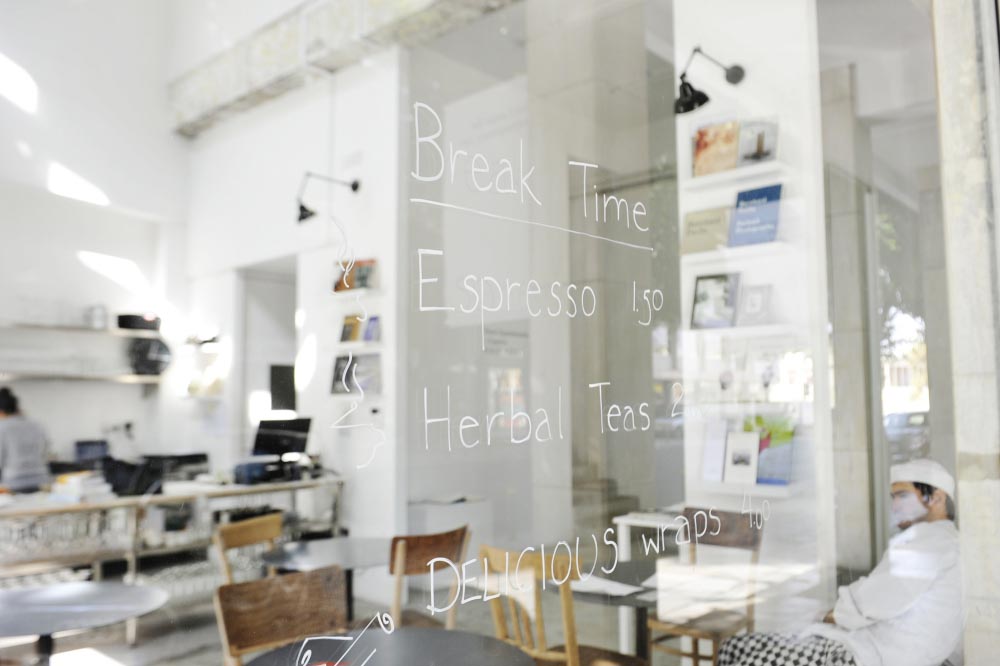 Break Time
Espresso 1.50
Herbal Teas
DELICIOUS wraps 4.00